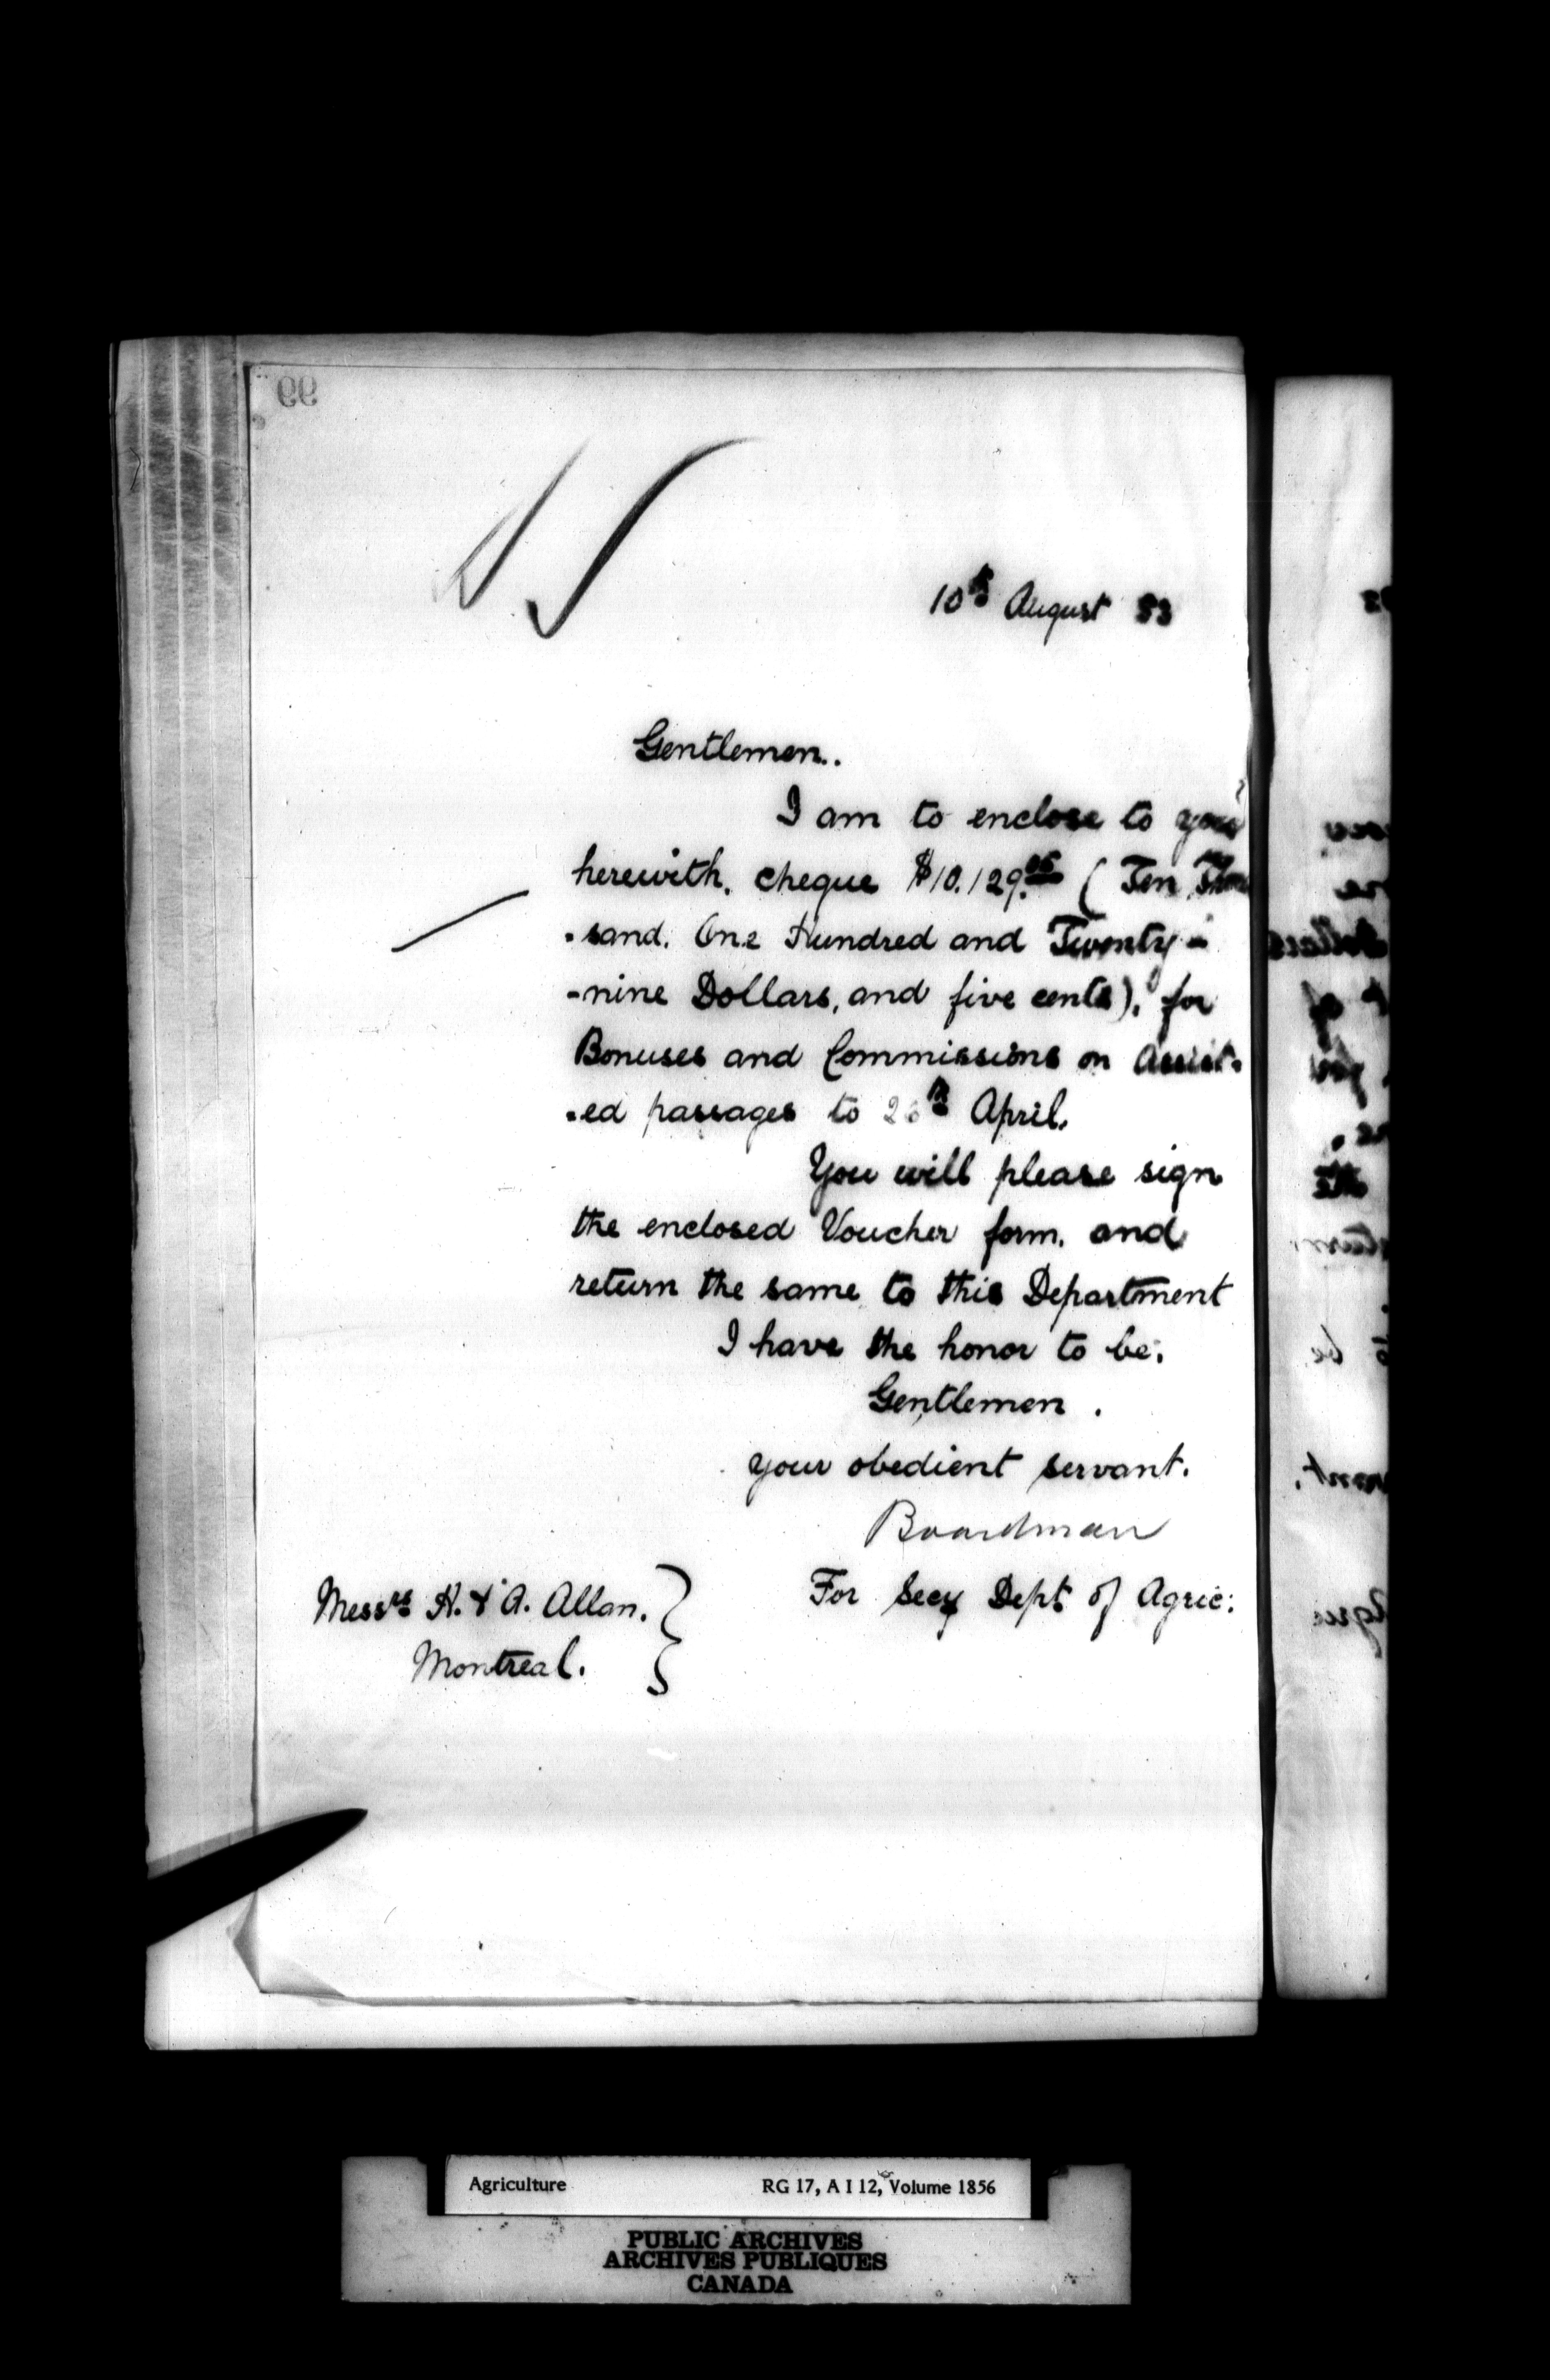 10th August 83
Gentlemen..
I am to enclose to you
herewith. cheque $10.129.05 (Ten Thou
-sand. One Hundred and Twenty-
-nine Dollars, and five cents). for
Bonuses and Commissions on Assist-
-ed passages to 26th April.
You will please sign
the enclosed Voucher form. and
return the same to this Department
I have the honor to be.
Gentlemen .
your obedient servant.
Boardman
For Secy Dept of Agric:
Messrs H. & A. Allan.
Montreal.
Agriculture RG 17, A I 12, Volume 1856
PUBLIC ARCHIVES
ARCHIVES PUBLIQUES
CANADA